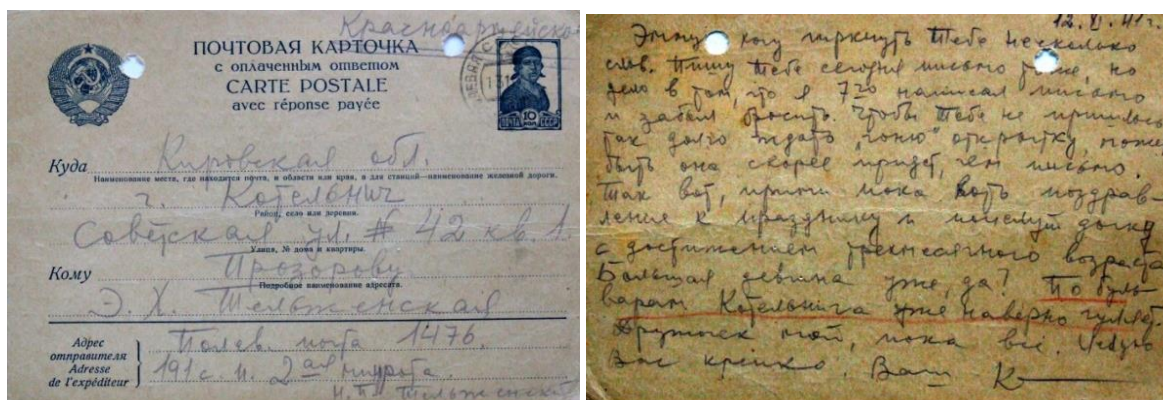 Красноармейское
ПОЧТОВАЯ КАРТОЧКА
с оплаченным ответом
CARTE POSTALE
avec réponse payée
10 коп.
ПОЧТА СССР
Куда Кировская обл.
Наименование места, где находится почта, и области или края, а для станций—наименование железной дороги.
г. Котельнич
Район, село или деревня.
Советская ул. # 42 кв. 1.
Улица, № дома и квартиры.
Кому Прозорову
Подробное наименование адресата.
Э. Х. Тельженская
Адрес отправителя
Adresse de l'expéditeur
Полев. почта 1476.
191 с. п. 2ая
Тельженский
12.XI.41 г.
хочу черкнуть Тебе несколько
слов. Пишу Тебе сегодня письмо тоже, но
дело в том, что я 7го написал письмо
и забыл бросить. Чтобы Тебе не пришлось
так долго ждать, "гоню" открытку, может
быть она скорее придет, чем письмо.
Так вот, прими пока хоть поздрав-
ление к празднику и поцелуй дочку
с достижением трехмесячного возраста
Большая девица уже, да? По буль-
варам Котельнича уже наверно гуляет.
Дружочек мой, пока всё. Целую
Вас крепко. Ваш К